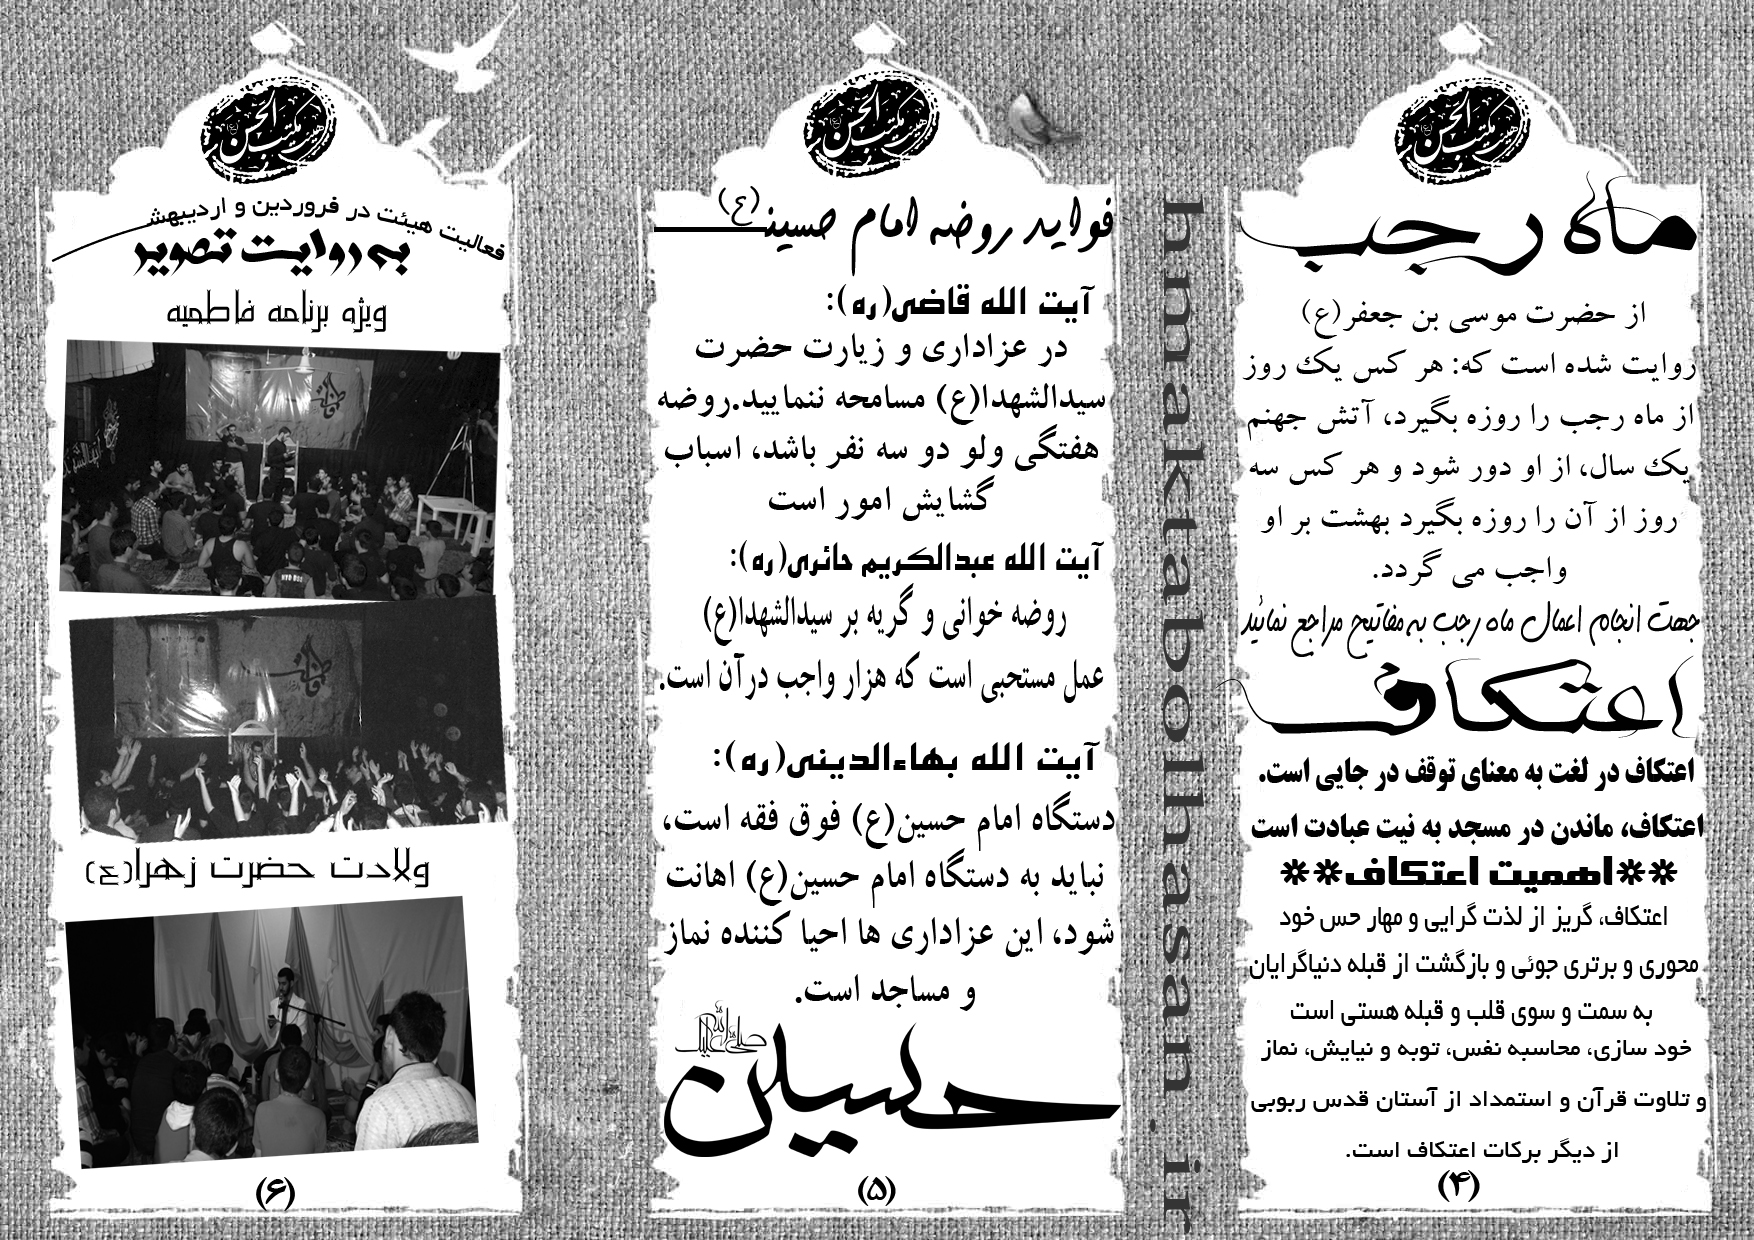 هیئت مکتب الحسن
ماه رجب
از حضرت موسی بن جعفر(ع)
روایت شده است که: هر کس یک روز
از ماه رجب را روزه بگیرد، آتش جهنم
یک سال، از او دور شود و هر کس سه
روز از آن را روزه بگیرد بهشت بر او
واجب می گردد.
جهت انجام اعمال ماه رجب به مفاتیح مراجع نمائید
اعتکاف
اعتکاف در لغت به معنای توقف در جایی است.
اعتکاف، ماندن در مسجد به نیت عبادت است
**اهمیت اعتکاف**
اعتکاف، گریز از لذت گرایی و مهار حس خود
محوری و برتری جوئی و بازگشت از قبله دنیاگرایان
به سمت و سوی قلب و قبله هستی است
خود سازی، محاسبه نفس، توبه و نیایش، نماز
و تلاوت قرآن و استمداد از آستان قدس ربوبی
از دیگر برکات اعتکاف است.
(۴)
hmaktabolhasan.ir
هیئت مکتب الحسن
فواید روضه امام حسین(ع)
آیت الله قاضی(ره):
در عزاداری و زیارت حضرت
سیدالشهدا(ع) مسامحه ننمایید.روضه
هفتگی ولو دو سه نفر باشد، اسباب
گشایش امور است
آیت الله عبدالکریم حائری(ره):
روضه خوانی و گریه بر سیدالشهدا(ع)
عمل مستحبی است که هزار واجب درآن است.
آیت الله بهاءالدینی(ره):
دستگاه امام حسین(ع) فوق فقه است،
نباید به دستگاه امام حسین(ع) اهانت
شود، این عزاداری ها احیا کننده نماز
و مساجد است.
صلی الله علیک
حسین
(۵)
هیئت مکتب الحسن
فعالیت هیئت در فروردین و اردیبهشت
به روایت تصویر
ویژه برنامه فاطمیه
ولادت حضرت زهرا(ع)
(۶)